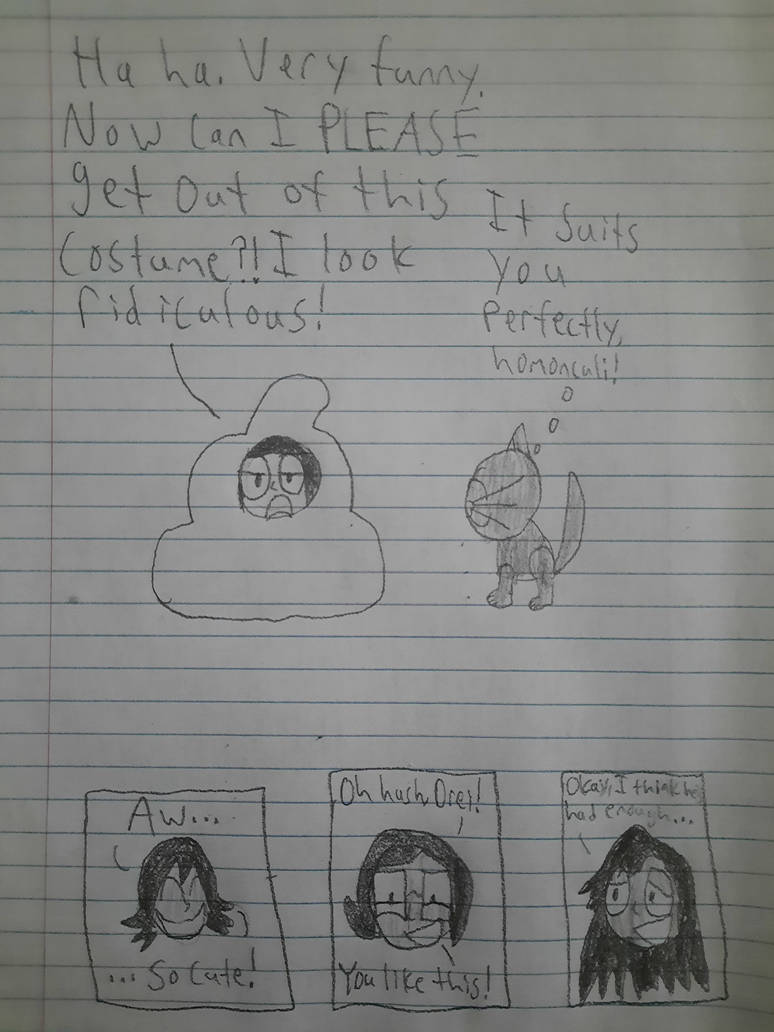 Ha ha. Very funny.
Now can I PLEASE
get out of this
costume?! I look
ridiculous!
It suits
you
perfectly,
homonculi!
Aw...
... So cute!
Oh hush, Orej!
You like this!
Okay, I think he
had enough...